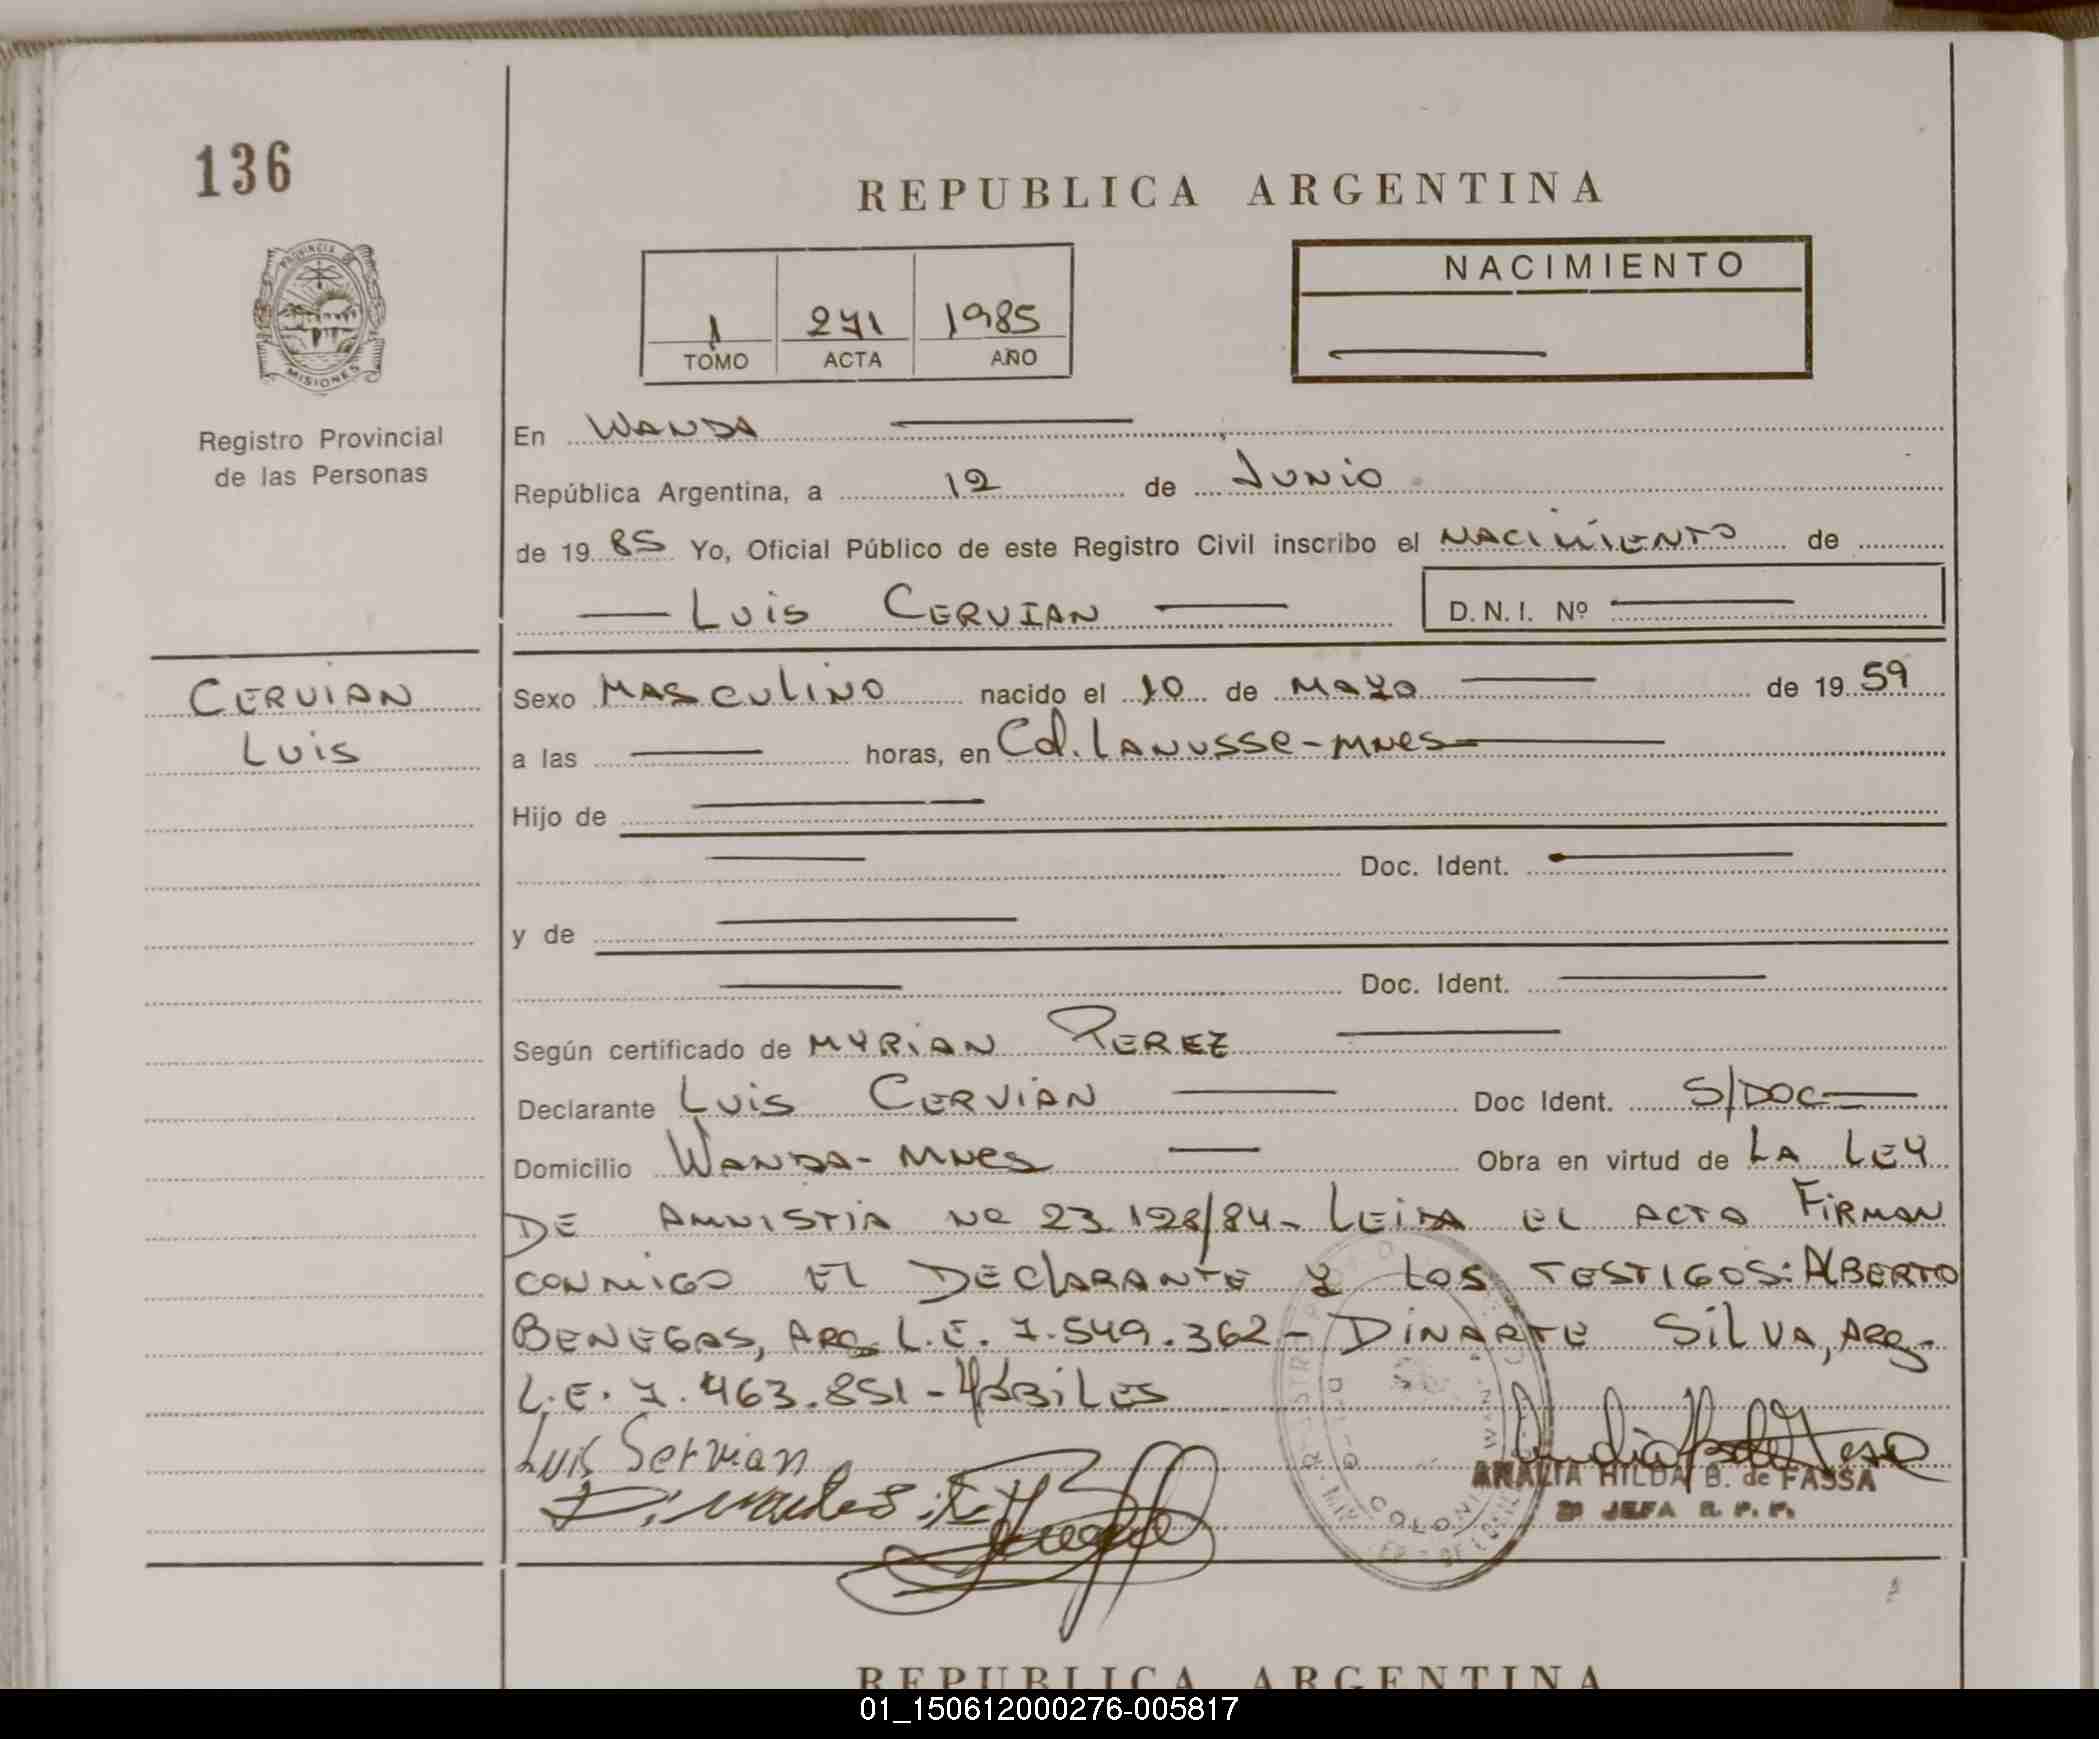 136
REPUBLICA ARGENTINA
PROVINCIA DE
MISIONES
Registro Provincial
de las Personas
1 271 1985
TOMO ACTA AÑO
NACIMIENTO
En WANDA
República Argentina, a 12 de Junio
de 19 85 Yo, Oficial Público de este Registro Civil inscribo el NACIMIENTO de
Luis CERVIAN D.N.I. Nº
CERVIAN
Luis
Sexo MASCULINO nacido el 10 de MAYO de 19 59
a las horas, en Col. LANUSSE-MNES
Hijo de
Doc. Ident.
y de
Doc. Ident.
Según certificado de MYRIAN PEREZ
Declarante Luis CERVIAN Doc Ident. S/DOC
Domicilio WANDA-MNES Obra en virtud de LA LEY
DE AMNISTIA Nº 23.128/84- LEIDA EL ACTA FIRMAN
CONMIGO EL DECLARANTE Y LOS TESTIGOS: ALBERTO
BENEGAS, ARG. L.E. 7.549.362- DINARTE SILVA, ARG.
L.E. 7.463.851- HÁBILES
Luis Servian
ANALIA HILDA B. de FASSA
JEFA R. P. P.
REPUBLICA ARGENTINA
01_150612000276-005817